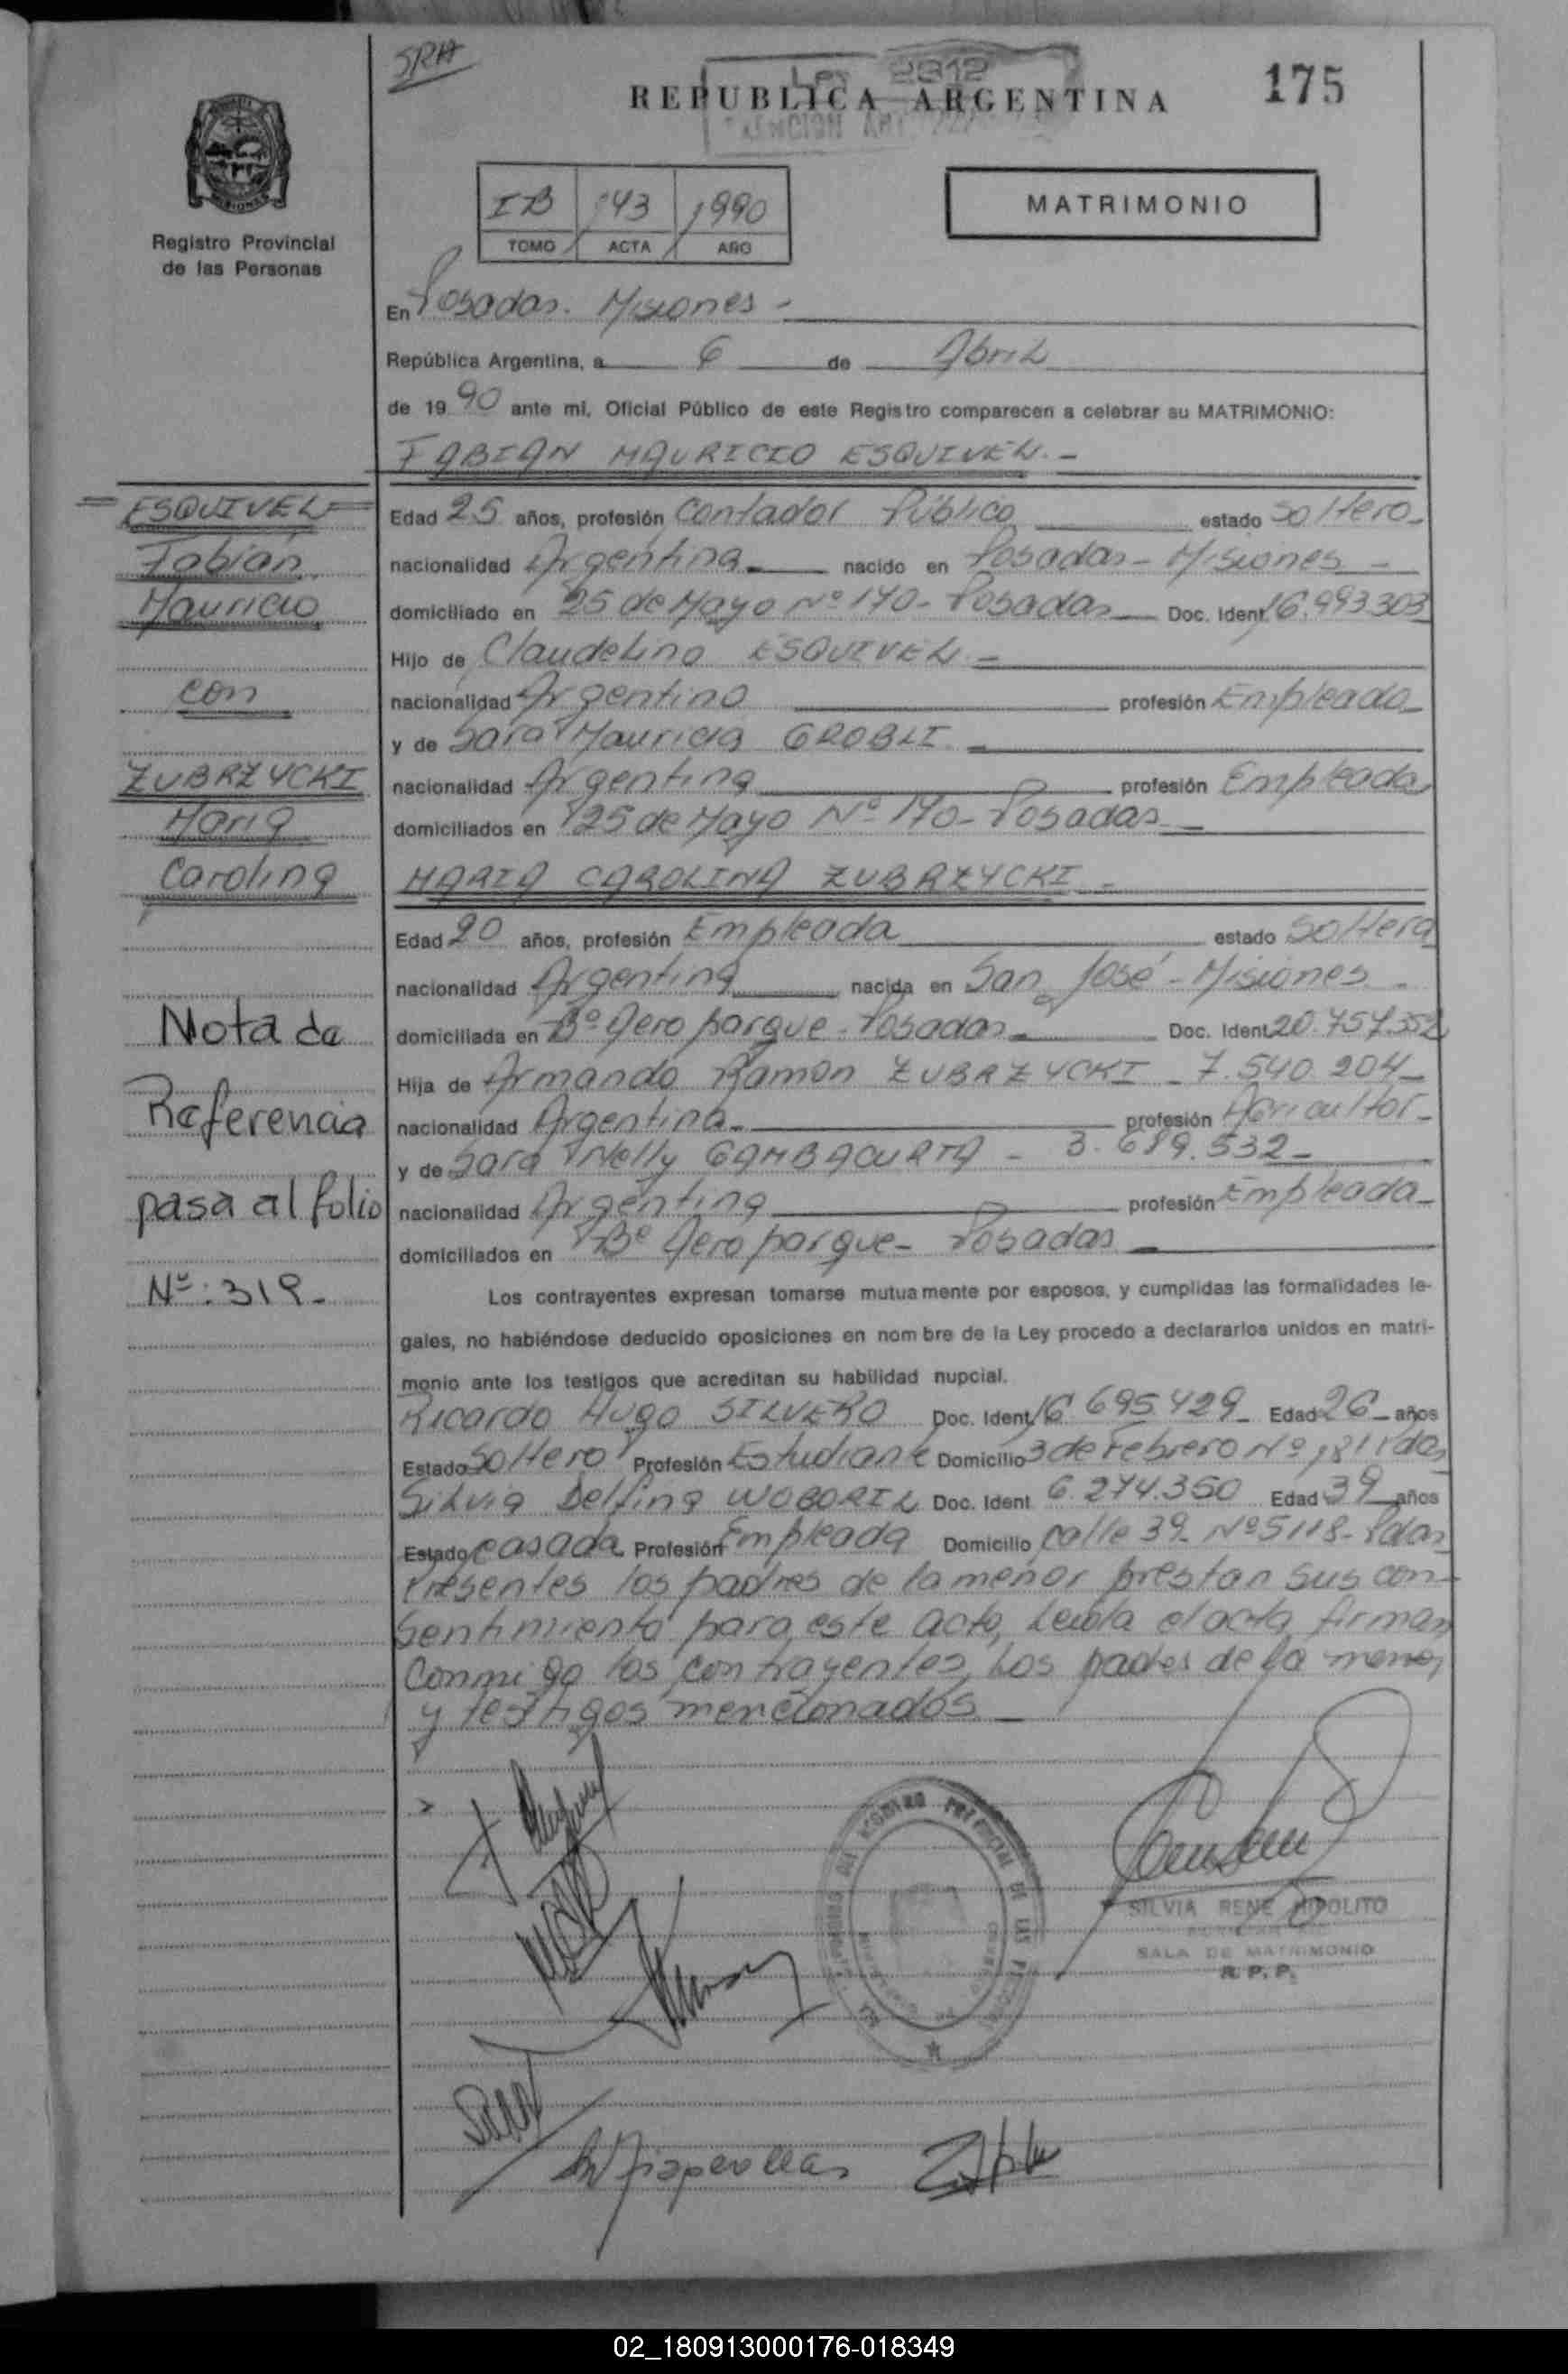 SRH
Ley 2312
REPUBLICA ARGENTINA
175
MISIONES
Registro Provincial
de las Personas
IB 143 1990
TOMO ACTA AÑO
MATRIMONIO
En Posadas. Misiones -
República Argentina, a 6 de Abril
de 19 90 ante mi, Oficial Público de este Registro comparecen a celebrar su MATRIMONIO:
FABIAN MAURICIO ESQUIVEL. -
= ESQUIVEL =
Fabián
Mauricio
con
ZUBRZYCKI
Maria
Carolina
Nota de
Referencia
pasa al folio
Nº: 319-
Edad 25 años, profesión Contador Público estado Soltero-
nacionalidad Argentina nacido en Posadas - Misiones -
domiciliado en 25 de Mayo Nº 170- Posadas Doc. Ident. 16.993.303
Hijo de Claudelino ESQUIVEL. -
nacionalidad Argentino profesión Empleado
y de Sara Mauricia GROBLI. -
nacionalidad Argentina profesión Empleada
domiciliados en 25 de Mayo Nº 170- Posadas
MARIA CAROLINA ZUBRZYCKI -
Edad 20 años, profesión Empleada estado Soltera
nacionalidad Argentina nacida en San José - Misiones -
domiciliada en Bº Aeroparque - Posadas Doc. Ident. 20.757.352
Hija de Armando Ramon ZUBRZYCKI - 7.540.204-
nacionalidad Argentina profesión Agricultor-
y de Sara Nelly GAMBACURTA - 3.689.532-
nacionalidad Argentina profesión Empleada-
domiciliados en Bº Aeroparque- Posadas
Los contrayentes expresan tomarse mutuamente por esposos, y cumplidas las formalidades le-
gales, no habiéndose deducido oposiciones en nombre de la Ley procedo a declararlos unidos en matri-
monio ante los testigos que acreditan su habilidad nupcial.
Ricardo Hugo SILVERO Doc. Ident. 16.695.429- Edad 26 años
Estado Soltero Profesión Estudiante Domicilio 3 de Febrero Nº 1811 Pdas
Silvia Delfina WOBORIL Doc. Ident 6.274.350 Edad 39 años
Estado casada Profesión Empleada Domicilio calle 39- Nº 5118- Pdas
Presentes los padres de la menor prestan sus con-
sentimiento para este acto, Leida el acta, firman
Conmigo los contrayentes, los padres de la menor,
y testigos mencionados
SILVIA RENE HIPOLITO
SALA DE MATRIMONIO
R. P. P.
02_180913000176-018349